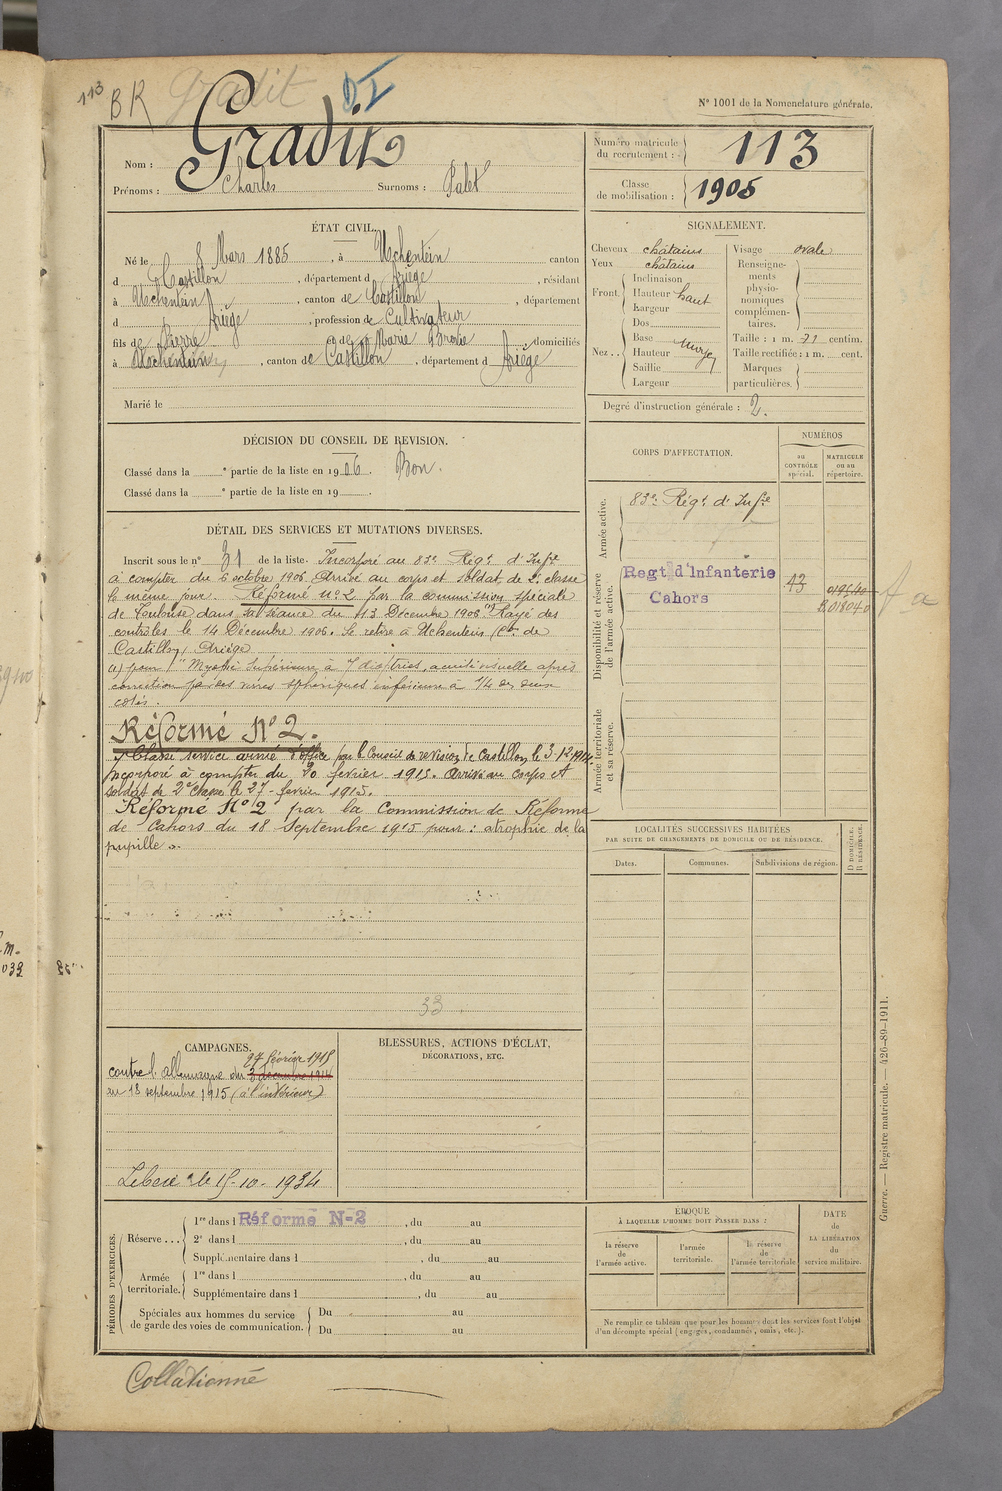 113 BR Gradit DI
N° 1001 de la Nomenclature générale.
Gradit
Nom :
Prénoms : Charles Surnoms : Palet
Numéro matricule du recrutement : 113
Classe de mobilisation : 1905
ÉTAT CIVIL.
Né le 8 Mars 1885, à Uchentein canton
d Castillon, département d Ariège, résidant
à Uchentein, canton de Castillon, département
d Ariège, profession de Cultivateur
fils de Pierre et de Marie, domiciliés
à Uchentein, canton de Castillon, département d Ariège
Marié le
SIGNALEMENT.
Cheveux châtains
Yeux châtains
Front.
Inclinaison
Hauteur haut
Largeur
Nez..
Dos
Base
Hauteur moyen
Saillie
Largeur
Visage ovale
Renseignements physionomiques complémentaires.
Taille : 1 m. 71 centim.
Taille rectifiée : 1 m. cent.
Marques particulières.
Degré d'instruction générale : 2.
DÉCISION DU CONSEIL DE REVISION.
Classé dans la e partie de la liste en 1906. Bon.
Classé dans la e partie de la liste en 19 .
CORPS D'AFFECTATION.
NUMÉROS
au CONTRÔLE spécial.
MATRICULE ou au répertoire.
Armée active.
83e Régt d'Infie
Disponibilité et réserve de l'armée active.
Regt d'Infanterie
Cahors
43
019540
R.018040
Armée territoriale et sa réserve.
DÉTAIL DES SERVICES ET MUTATIONS DIVERSES.
Inscrit sous le n° 31 de la liste. Incorporé au 83e Régt d'Infie
à compter du 6 octobre 1906. Arrivé au corps et soldat de 2e classe
le même jour. Réformé n° 2 par la commission spéciale
de Toulouse dans sa séance du 13 Décembre 1906. Rayé des
contrôles le 14 Décembre 1906. Se retire à Uchentein (Con de
Castillon, Ariège
(1) pour "Myopie supérieure à 7 dioptries, acuité visuelle après
correction par les verres sphériques inférieure à 1/4 des deux
côtés.
Réformé N° 2.
Classé service armé d'office par le Conseil de revision de Castillon le 3-12-1914.
Incorporé à compter du 20 fevrier 1915. Arrivé au corps et
soldat de 2e classe le 27 fevrier 1915.
Réformé N° 2 par la Commission de Réforme
de Cahors du 18 Septembre 1915 pour : atrophie de la
pupille ".
33
LOCALITÉS SUCCESSIVES HABITÉES
PAR SUITE DE CHANGEMENTS DE DOMICILE OU DE RÉSIDENCE.
Dates. Communes. Subdivisions de région.
D DOMICILE.
R RÉSIDENCE.
CAMPAGNES.
27 février 1915
contre l'allemagne du 3 décembre 1914
au 18 septembre 1915 (à l'intérieur)
Libéré le 15-10-1934
BLESSURES, ACTIONS D'ÉCLAT,
DÉCORATIONS, ETC.
PÉRIODES D'EXERCICES.
Réserve ...
1re dans l Réformé N=2, du au
2e dans l , du au
Supplémentaire dans l , du au
Armée territoriale.
1re dans l , du au
Supplémentaire dans l , du au
Spéciales aux hommes du service de garde des voies de communication.
Du au
Du au
ÉPOQUE
À LAQUELLE L'HOMME DOIT PASSER DANS :
la réserve de l'armée active.
l'armée territoriale.
la réserve de l'armée territoriale
DATE de LA LIBÉRATION du service militaire.
Ne remplir ce tableau que pour les hommes dont les services font l'objet
d'un décompte spécial (engagés, condamnés, omis, etc.).
Guerre. — Registre matricule. — 426-89-1911.
Collationné